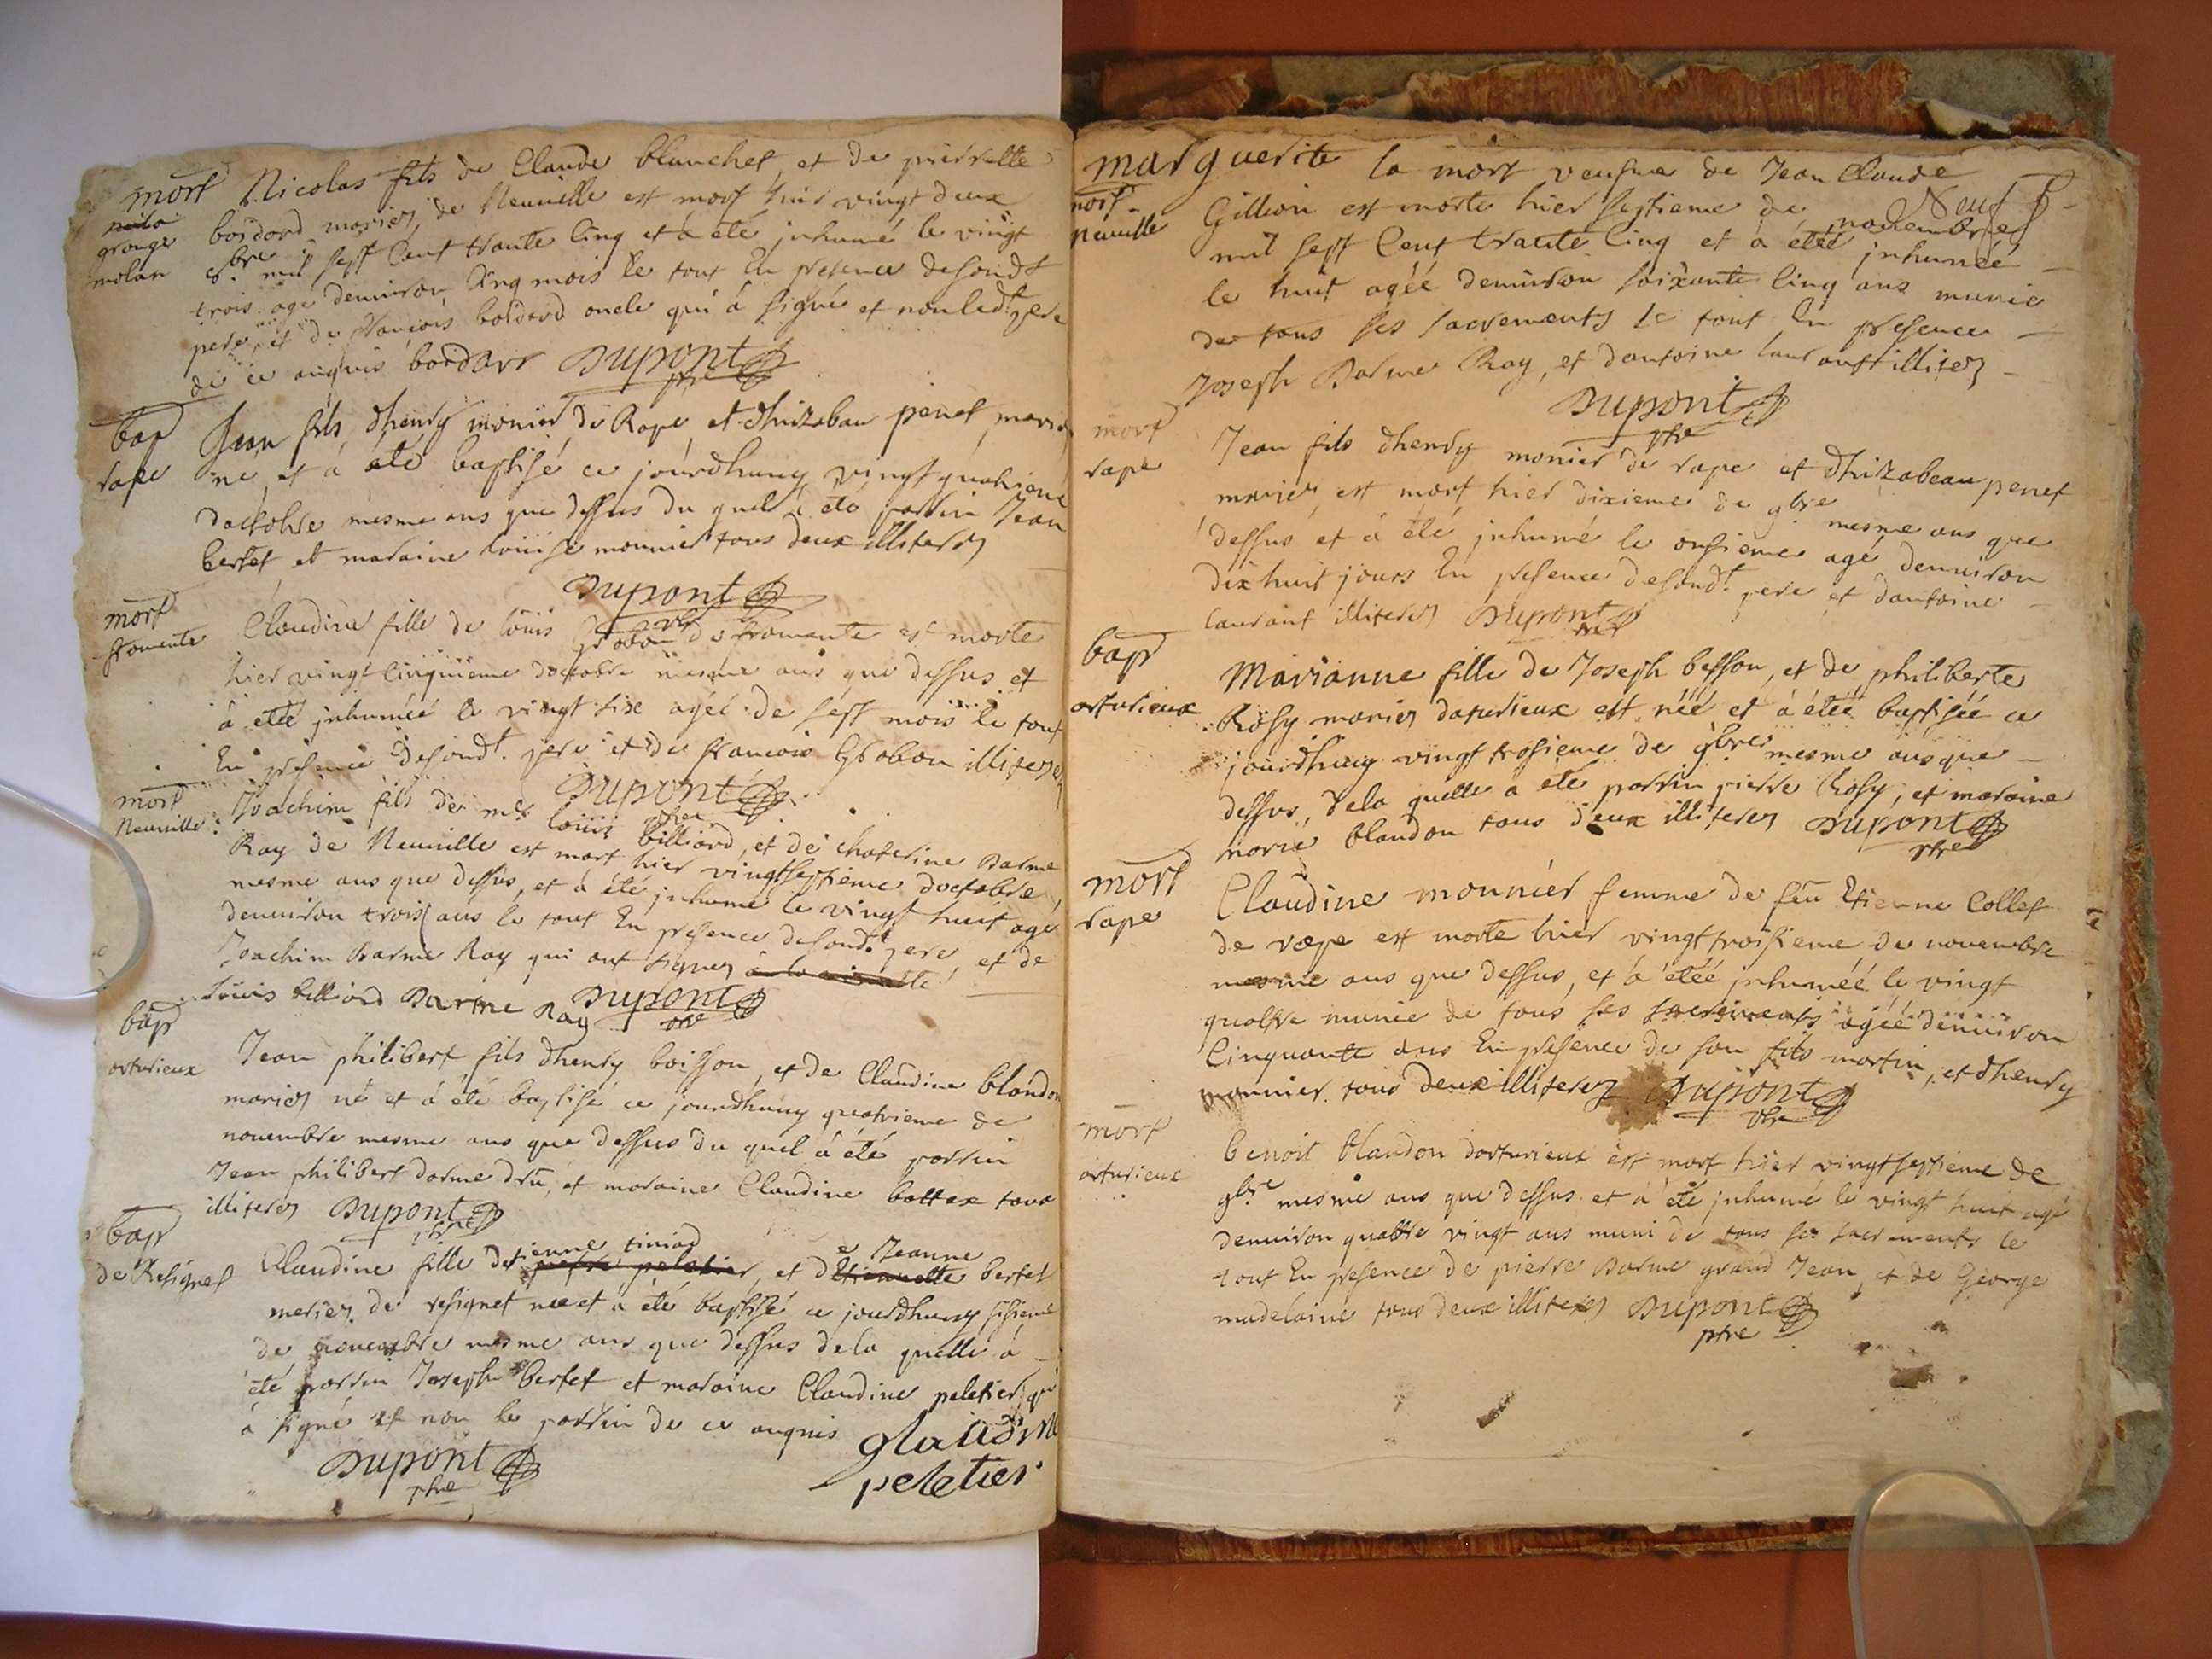 mort Nicolas fils de Claude blanchet, et de pierrette
grange molan
bordord mariez, de Neuuille est mort hier vingt deux
8.bre mil sept Cent trante Cinq et à été jnhumé le vingt
trois agé denuiron Cinq mois le tout En presence desondt
pere, et de francois bordord oncle qui à signé et non ledt pere
de ce anquis bordarr Dupont ptre
bap
rape
Jean fils dhenry monier de Rape et dhizabau penet mariez
né, et à eté baptisé ce jourdhuuy vingt quatrieme
doctobre mesme ans que dessus du quel à eté parrin Jean
bertet et maraine louise monnier tous deux illiterez
Dupont
ptre
mort
fromente
Claudine fille de louis Grobon de fromente est morte
hier vingt Cinquieme doctobre mesme ans que dessus et
à etéé jnhuméé le vingt six agéé de sept mois le tout
En presence desondt. pere et de francois Grobon illiterez
Dupont
ptre
mort
Neuuille
Joachim fils de mr louis billiord, et de chaterine Darme
Ray de Neuuille est mort hier vingtseptieme doctobre,
mesme ans que dessus, et à été jnhumé le vingt huit agé
denuiron trois ans le tout En presence desondt. pere, et de
Joachim Darme Ray qui ont signez
louis billiord Darme Ray Dupont ptre
bap
orturieux
Jean philibert fils dhenry boisson, et de Claudine blandon
mariez né et à été baptisé ce jourdhuuy quatrieme de
nouembre mesme ans que dessus du quel à été parrin
Jean philibert dorme dru, et maraine Claudine bottex tous
illiterez Dupont
ptre
bap
de Resignet
tienne tiniod e Jeanne
Claudine fille de pierre peletier, et dEtiennette bertet
meriez de resignet nee et à eté baptisé ce jourdhuuy sisieme
de nouembre mesme ans que dessus dela quelle à
été parrin Joseph bertet et maraine Claudine peletier qui
à signé et non le parrin de ce anquis glaudine
peletier
Dupont
ptre
marguerite la mort veufue de Jean Claude
Neuf
mort
Neuuille
Gillion est morte hier septieme de nouembre
mil sept Cent trante Cinq et à étéé jnhuméé
le huit agéé denuiron soixante Cinq ans munie
de tous ses sacrements le tout En presence
Joseph Darme Ray, et dantoine laurant illiterez
Dupont
ptre
mort
rape
Jean fils dhenry monier de rape et dhizabeau penet
mariez, est mort hier dixieme de 9.bre mesme ans que
dessus et à été jnhumé le onsieme agé denuiron
dixhuit jours En presence desondt. pere et dantoine
laurant illiterez Dupont
ptre
bap
orturieux
Marianne fille de Joseph besson, et de philiberte
Rosy mariez doturieux est néé et à étéé baptiséé ce
jourdhuy vingt trosieme de 9bre mesme ans que
dessus, dela quelle a eté parrin pierre Rosy, et maraine
marie blandon tous deux illiterez Dupont
ptre
mort
rape
Claudine mounier femme de feu Etienne Collet
de rape est morte hier vingt troisieme de nouembre
mesme ans que dessus, et à étéé jnhuméé le vingt
quattre munie de tous ses sacrements agéé denuiron
Cinquante ans En presence de son fils martin, et dhenry
mounier tous deux illiterez Dupont
ptre
mort
orturieux
benoit blandon dorturieux est mort hier vingtseptieme de
9bre mesme ans que dessus et à été jnhumé le vingt huit agé
denuiron quattre vingt ans muni de tous ses sacrements le
tout En presence de pierre Darme grand Jean, et de George
madelaine tous deux illiterez Dupont
ptre